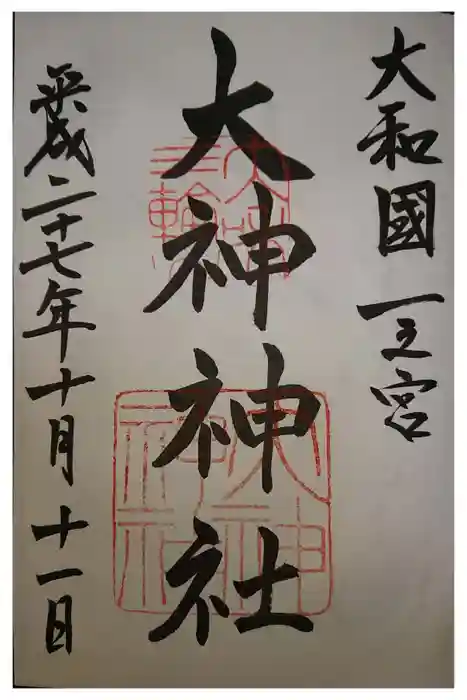 大和國一之宮
大神神社
大神
神社
平成二十七年十月十一日